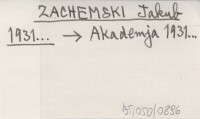 ZACHEMSKI Jakub
1931... → Akademja 1931...
BJ/050/0896